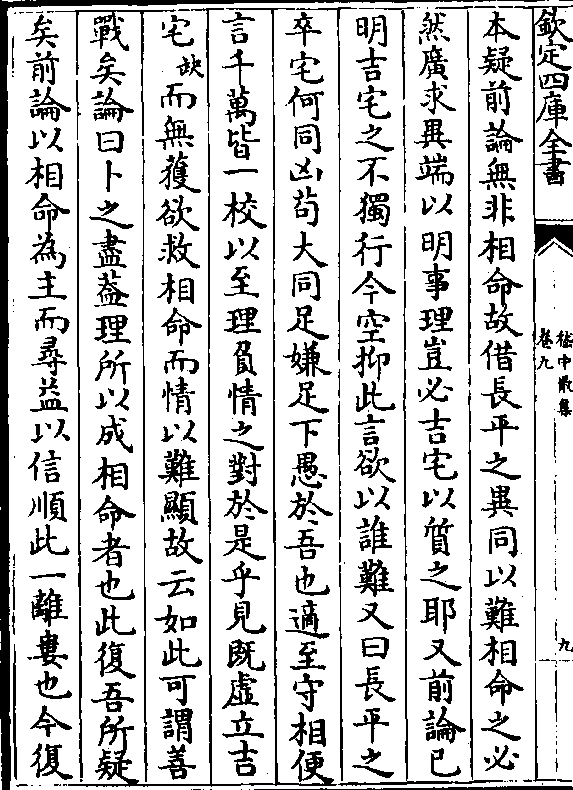 欽定四庫全書
嵇中散集
卷九
九
本疑前論無非相命故借長平之異同以難相命之必
然廣求異端以明事理豈必吉宅以質之耶又前論已
明吉宅之不獨行今空抑此言欲以誰難又曰長平之
卒宅何同凶苟大同足嫌足下愚於吾也適至守相便
言千萬皆一校以至理負情之對於是乎見既虛立吉
宅缺而無獲欲救相命而情以難顯故云如此可謂善
戰矣論曰卜之盡葢理所以成相命者也此復吾所疑
矣前論以相命為主而尋益以信順此一離婁也今復